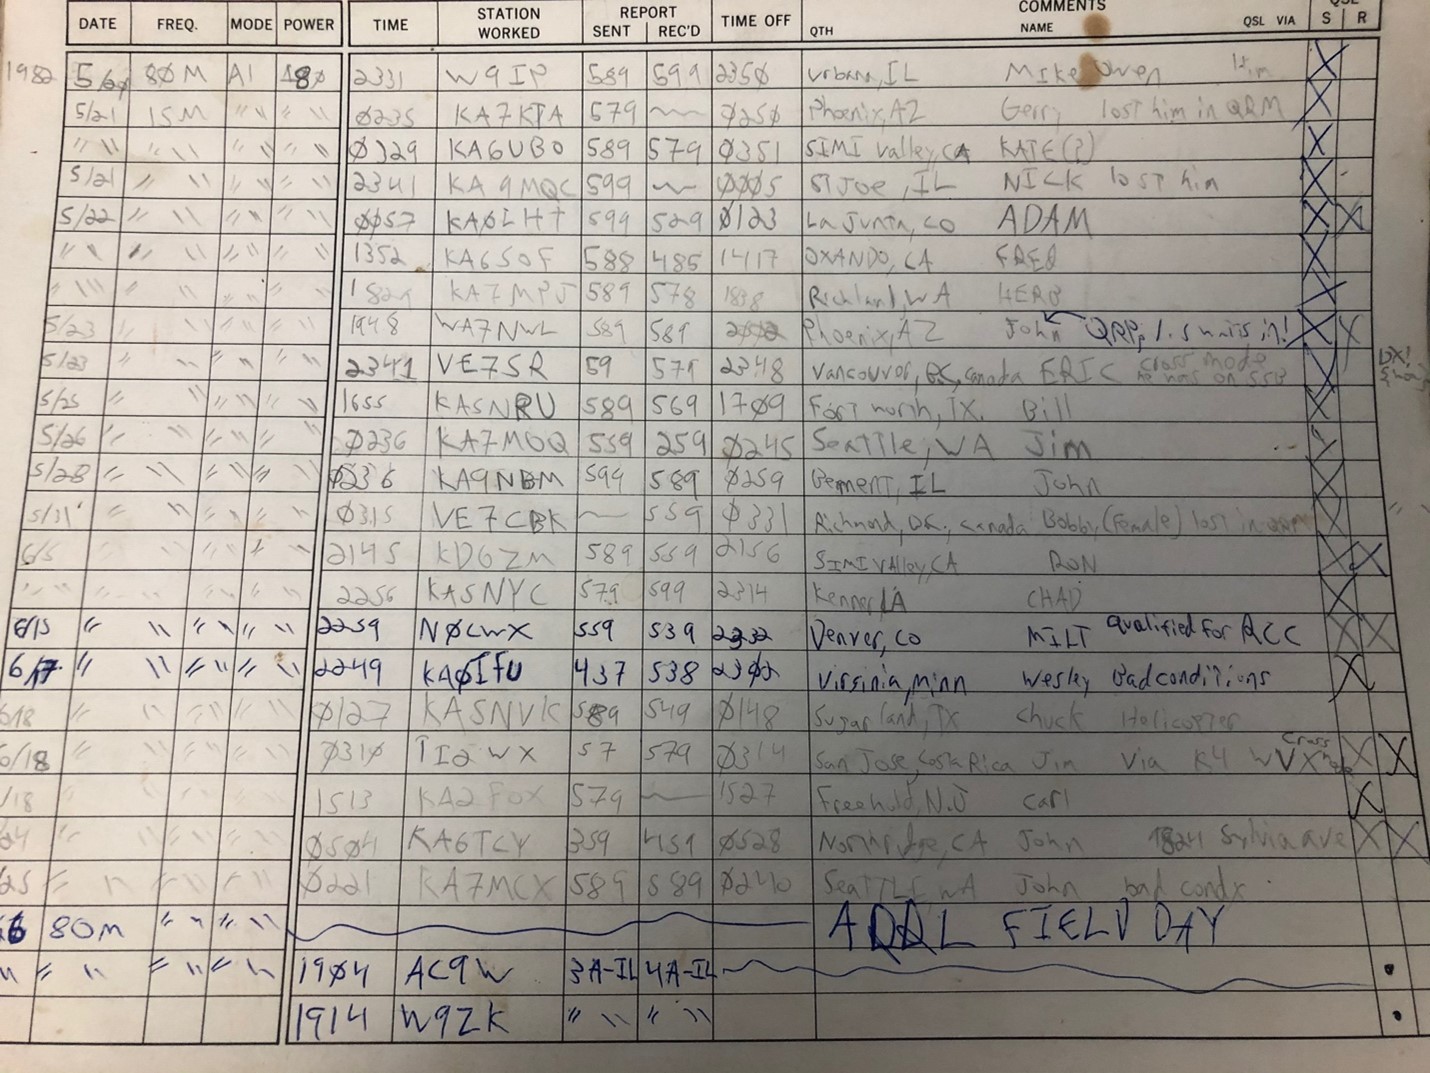 DATE FREQ. MODE POWER TIME STATION WORKED REPORT SENT REC'D TIME OFF COMMENTS QTH NAME QSL VIA S R
1982 80M A1 2331 W9IP 589 599 2350 Urbana, IL Mike Owen
5/21 15M " " " " Ø235 KA7KTA 579 Ø25Ø Phoenix, AZ Gerry lost him in QRM
" " " " " " " " Ø329 KA6UBO 589 579 Ø351 SIMI Valley, CA KATE(?)
5/21 " " " " " " 2341 KA9MQC 599 ØØØ5 ST Joe, IL NICK lost him
5/22 " " " " " " ØØ57 KAØLHT 599 529 Ø123 La Junta, CO ADAM
" " " " " " " " 1352 KA6SOF 588 485 1417 OXANDO, CA FRED
" " " " " " " " KA7MPJ 589 578 1838 Richland, WA HERB
5/23 " " " " " " 1948 WA7NWL 589 589 Phoenix, AZ John QRP, 1.5 watts in!
5/23 " " " " " " 2341 VE7SR 59 579 2348 Vancouver, BC, Canada ERIC cross mode he was on SSB DX!
5/25 " " " " " " 1655 KA5NRU 589 569 17Ø9 Fort worth, TX. Bill
5/26 " " " " " " Ø236 KA7MOQ 559 259 Ø245 Seattle, WA Jim
5/28 " " " " " " Ø236 KA9NBM 599 589 Ø259 Bement, IL John
5/31 " " " " " " Ø315 VE7CBK 559 Ø331 Richmond, BC, Canada Bobby (Female) lost in QRM
6/5 " " " " " " 2145 KD6ZM 589 559 2156 SIMI VAlley, CA RON
" " " " " " " " 2256 KA5NYC 579 599 2314 CHAD
6/15 " " " " " " 2259 NØCWX 559 539 2332 Denver, CO MILT qualified for RCC
6/17 " " " " " " 2249 KAØIFU 437 538 23Ø2 Virginia, Minn Wesley Bad conditions
6/18 " " " " " " Ø127 KA5NVK 589 549 Ø148 Sugar land, TX Chuck Helicopter
6/18 " " " " " " Ø31Ø TI2WX 57 579 Ø314 San Jose, Costa Rica Jim via K4 WVX cross mode
/18 " " " " " " 1513 KA2FOX 579 1527 Freehold, N.J Carl
24 " " " " " " Ø5Ø4 KA6TCY 359 459 Ø528 Northridge, CA John 1824 Sylvia ave
25 " " " " " " Ø221 KA7MCX 589 589 Ø240 SeaTTLE, WA John bad condx
26 80M " " " " ARRL FIELD DAY
" " " " " " " 19Ø4 AC9W 3A-IL 4A-IL
1914 W9ZK " " " "